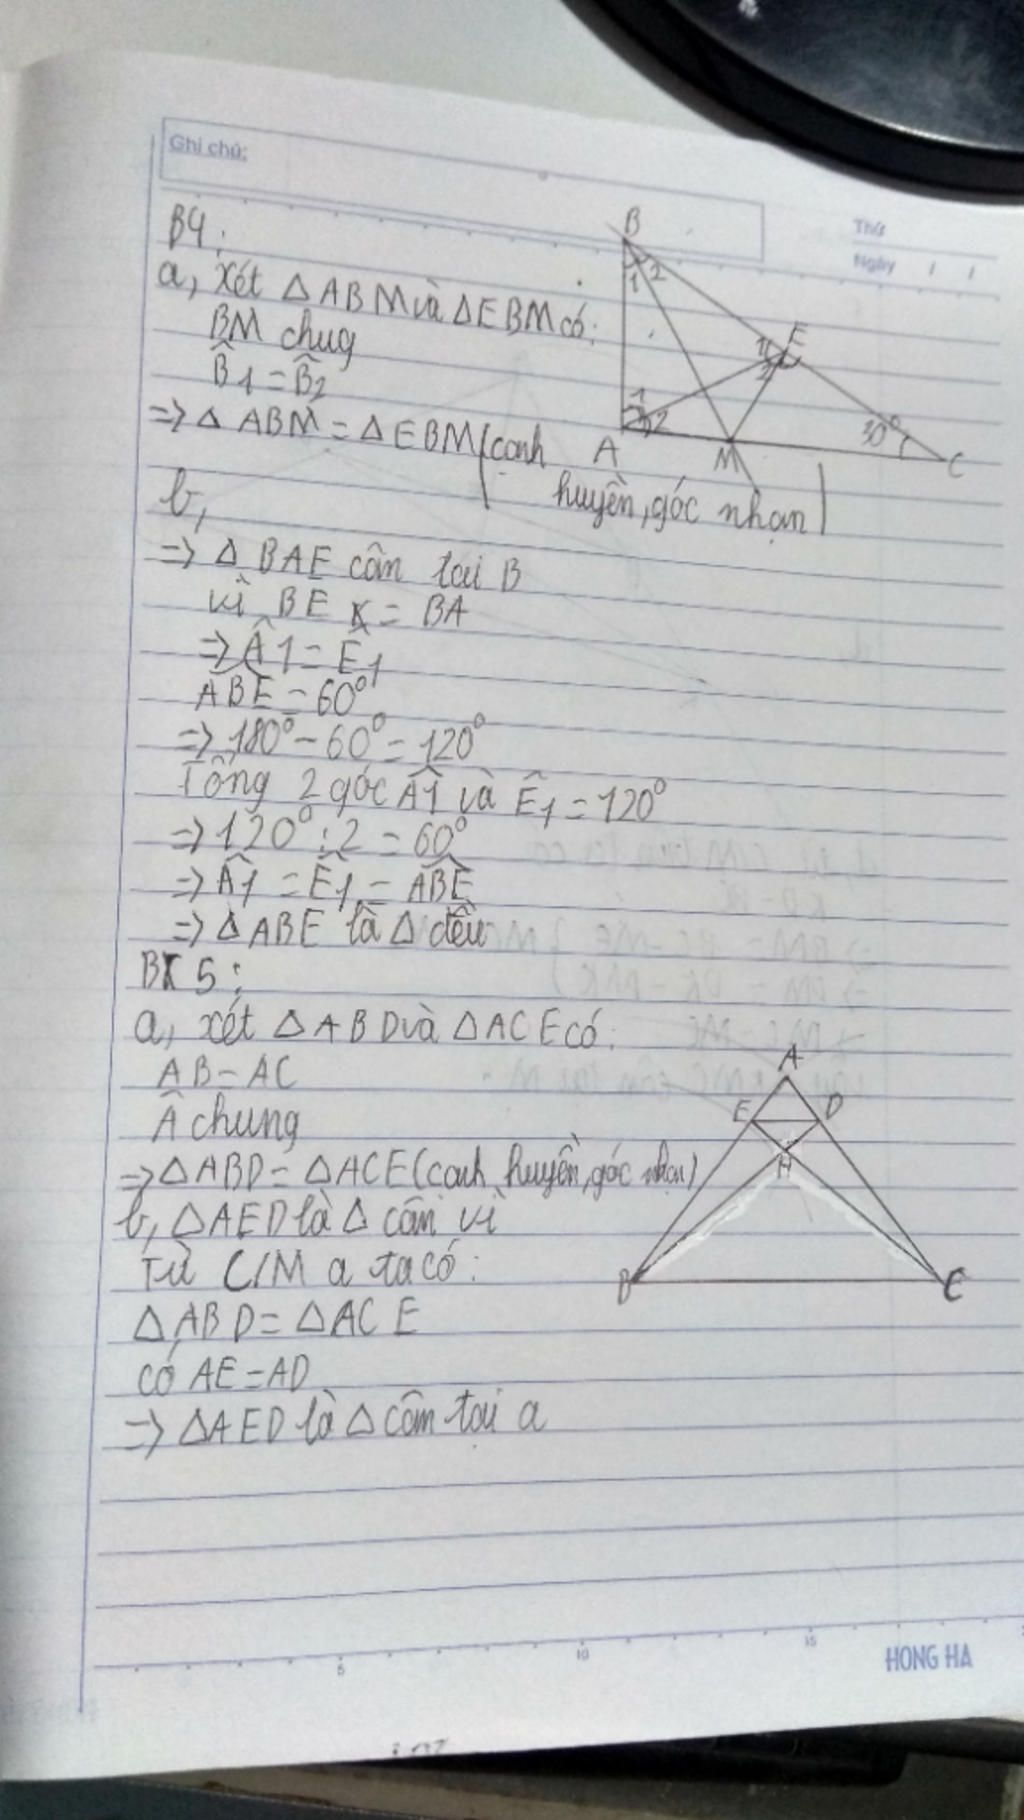 Ghi chú:
Thứ
Ngày / /
B4:
a, Xét △ABM và △EBM có:
BM chug
B̂1 = B̂2
=> △ABM = △EBM (canh
huyền, góc nhọn)
b,
=> △BAE cân tai B
vì BE = BA
=> Â1 = Ê1
ABE = 60°
=> 180° - 60° = 120°
Tổng 2 góc Â1 và Ê1 = 120°
=> 120° : 2 = 60°
=> Â1 = Ê1 = ABE
=> △ABE là △ đều
B 5:
a, xét △ABD và △ACE có:
AB = AC
 chung
=> △ABD = △ACE (canh huyền, góc nhọn)
b, △AED là △ cân vì
Từ C/M a ta có:
△ABD = △ACE
có AE = AD
=> △AED là △ cân tai a
B
1 2
E
1
2
1
2
30°
A
M
C
A
E D
H
B C
5 10 15
HONG HA